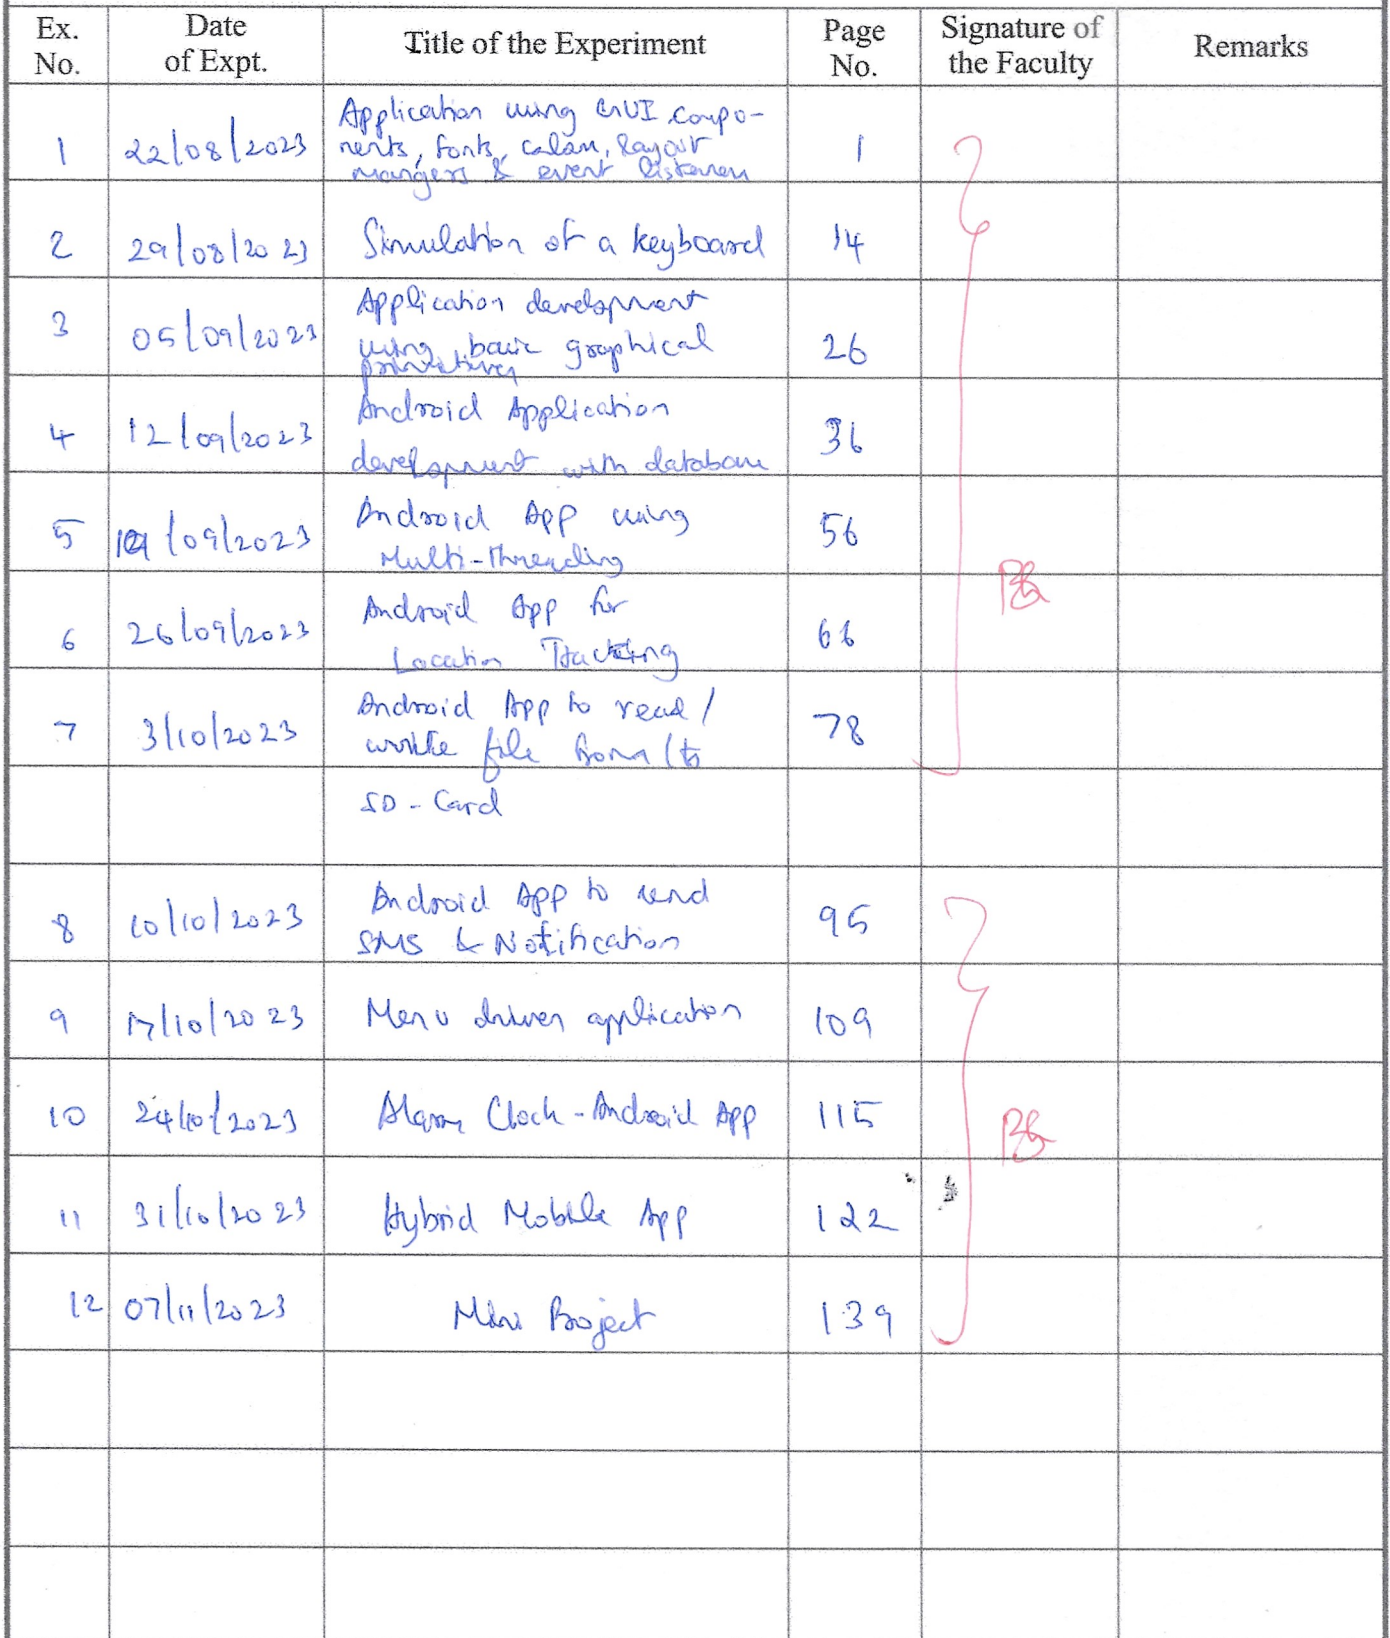 Ex. No. Date of Expt. Title of the Experiment Page No. Signature of the Faculty Remarks
1 22/08/2023 Application using GUI compo-
nents, fonts, colors, layout
mangers & event listeners 1
2 29/08/2023 Simulation of a keyboard 14
3 05/09/2023 Application development
using basic graphical
primitives 26
4 12/09/2023 Android Application
development with database 36
5 19/09/2023 Android App using
Multi-threading 56
6 26/09/2023 Android App for
Location Tracking 66
7 3/10/2023 Android App to read/
write file from/to
SD-Card 78
8 10/10/2023 Android App to send
SMS & Notification 95
9 17/10/2023 Menu driven application 109
10 24/10/2023 Alarm Clock-Android App 115
11 31/10/2023 Hybrid Mobile App 122
12 07/11/2023 Mini Project 139